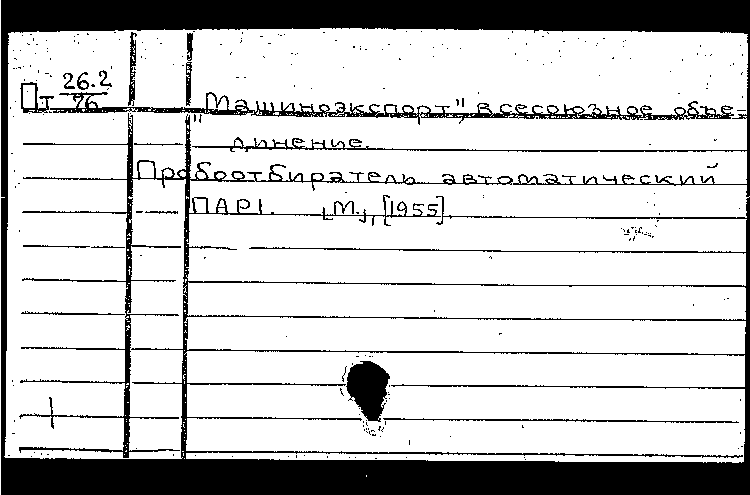 Пт 26.2
76
"Машиноэкспорт", всесоюзное объе-
динение.
Пробоотбиратель автоматический
ПАР1. [М.], [1955].